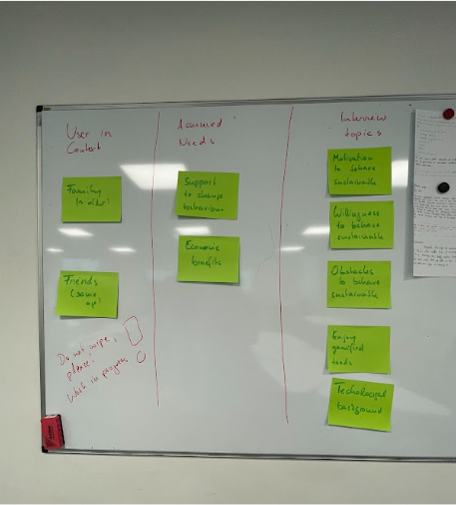 User in
Context
Family
Friends
(same
age)
Do not wipe,
please.
Work in progress
Assumed
Needs
Support
to change
behaviour
Economic
benefits
Interview
topics
Motivation
to behave
sustainable
Willingness
to behave
sustainable
Obstacles
to behave
sustainable
Enjoy
gamified
tools
Technological
background